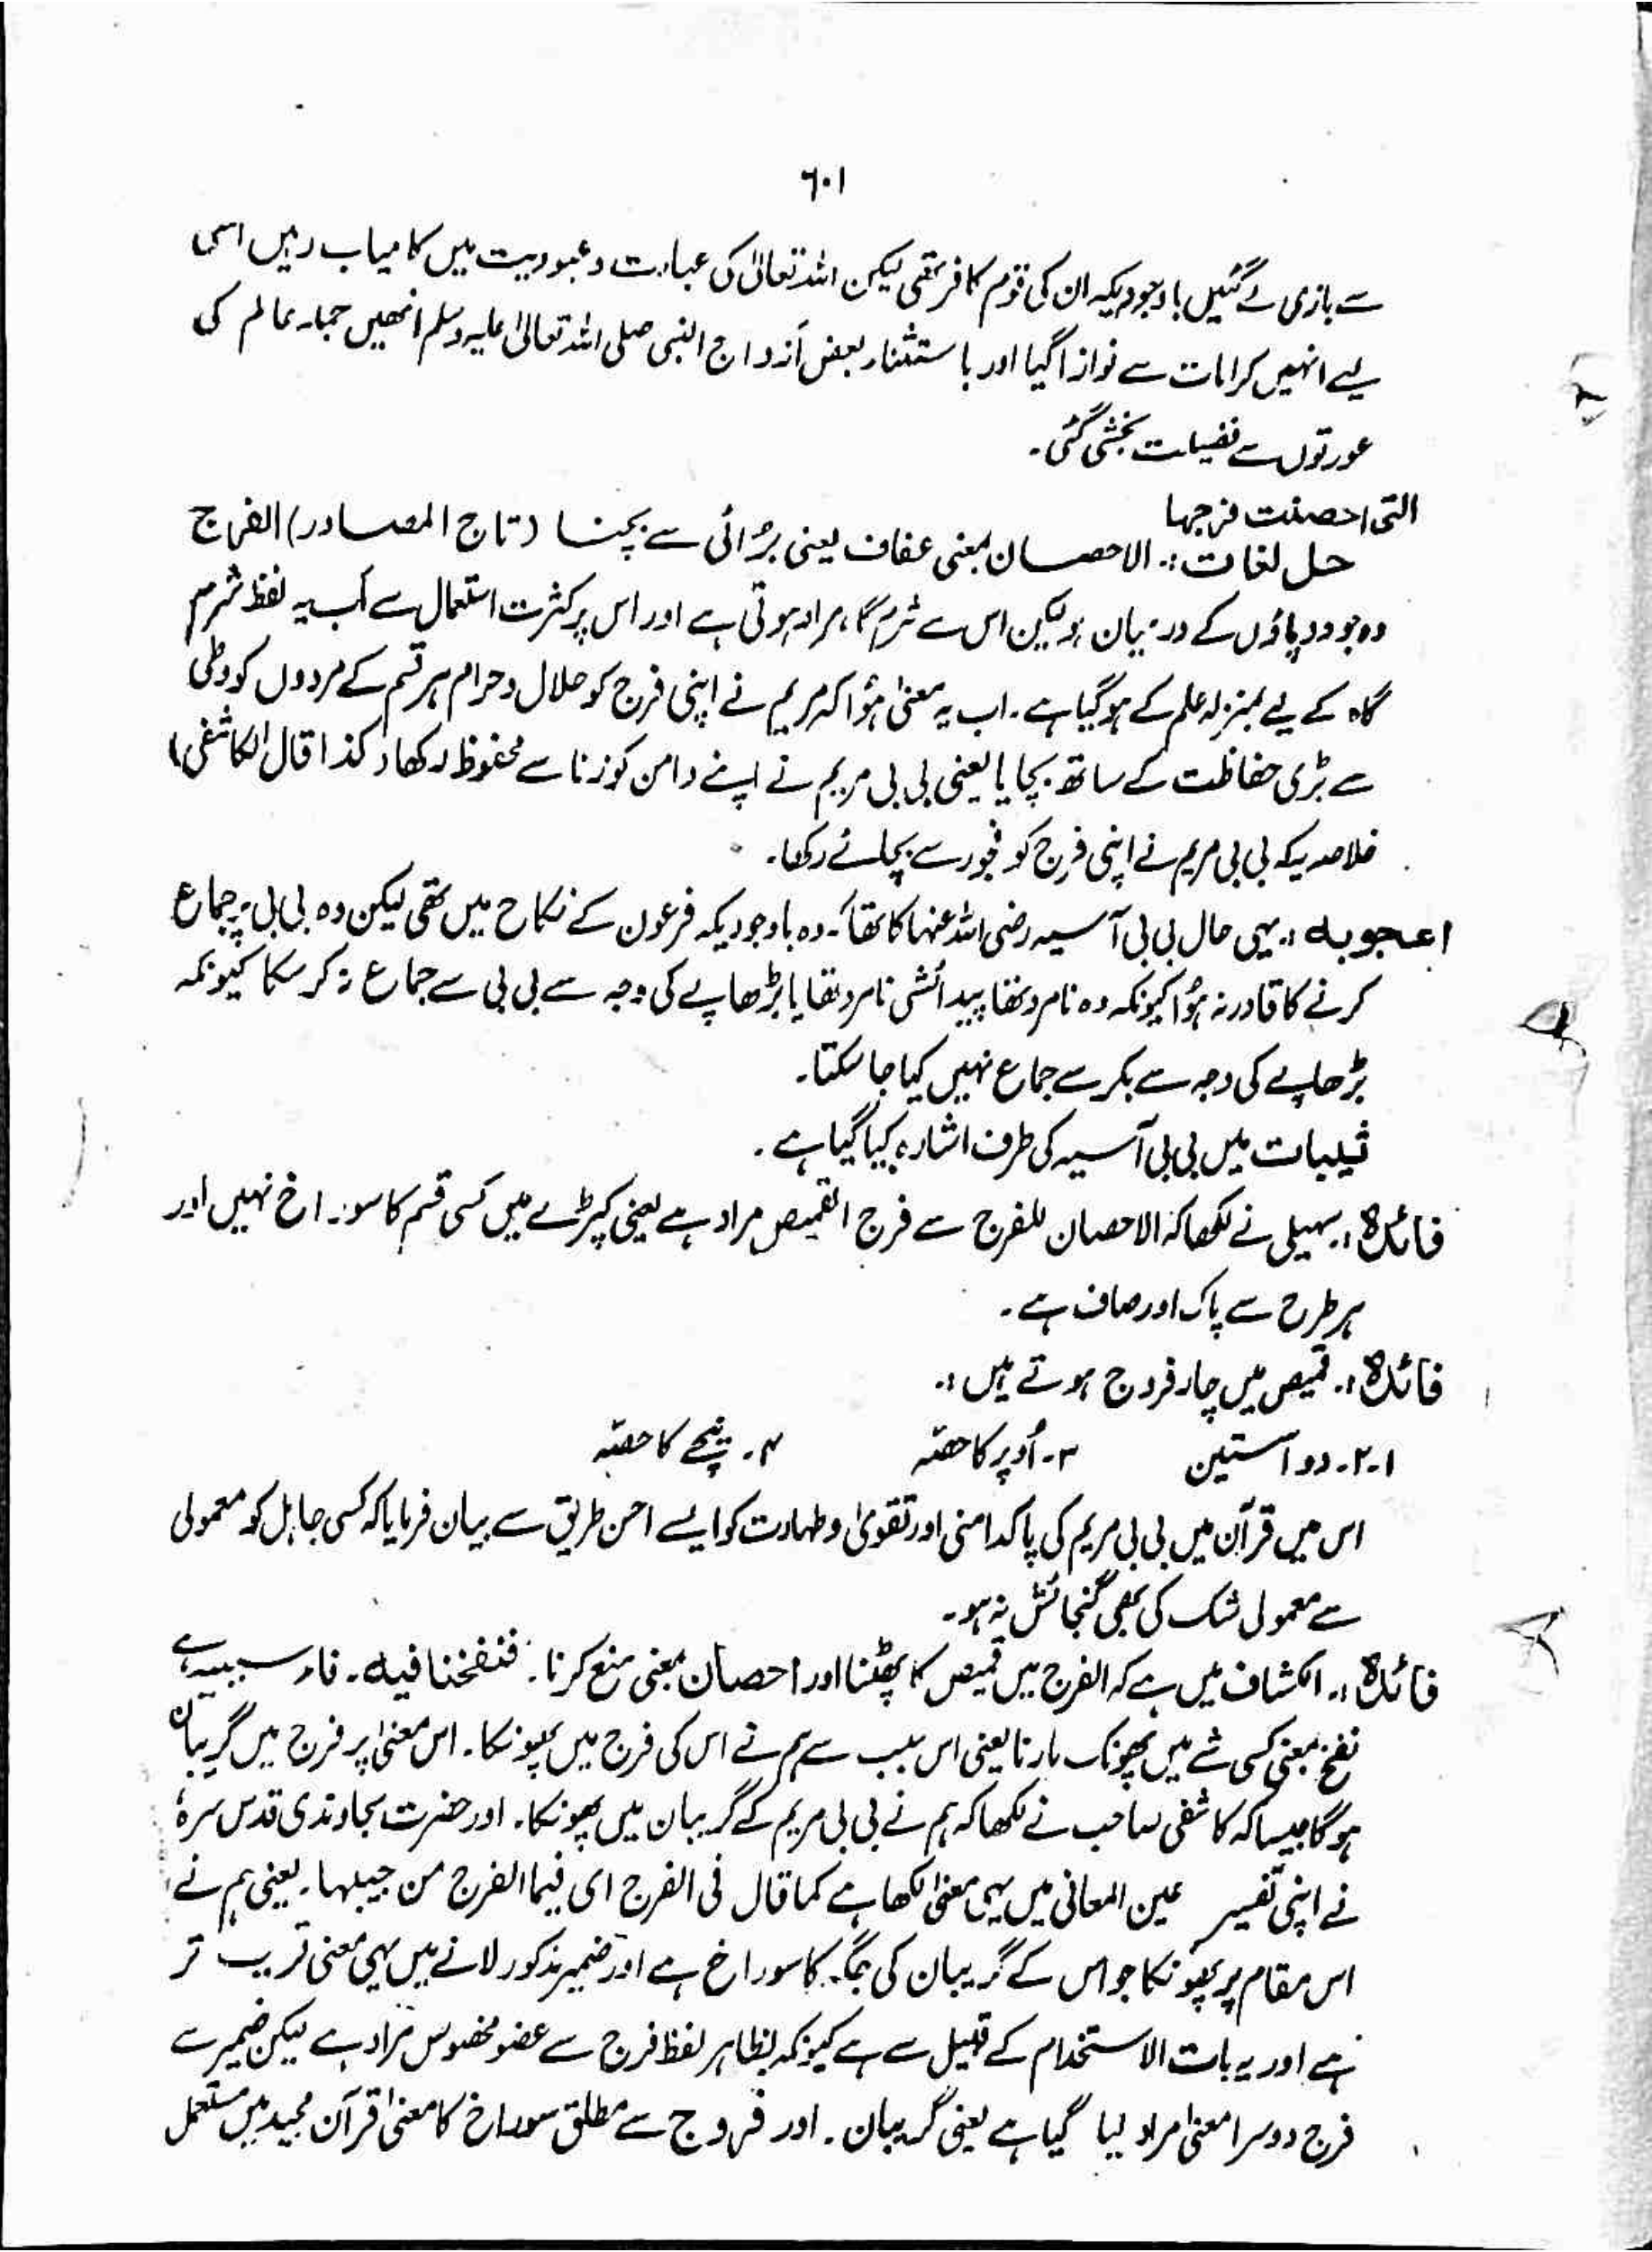 ٦٠١
سے بازی لے گئیں باوجودیکہ ان کی قوم کافر تھی لیکن اللہ تعالیٰ کی عبادت و عبودیت میں کامیاب رہیں اسی
لیے انہیں کرامات سے نوازا گیا اور باستثناء بعض ازواج النبی صلی اللہ تعالیٰ علیہ وسلم انھیں جملہ عالم کی
عورتوں سے فضیلت بخشی گئی۔
التی احصنت فرجہا
حل لغات :۔ الاحصان بمعنی عفاف یعنی برُائی سے بچنا (تاج المصادر) الفرج
وہ جو دو پاؤں کے درمیان ہو لیکن اس سے شرم گاہ مراد ہوتی ہے اور اس پر کثرت استعمال سے اَب یہ لفظ شرم
گاہ کے لیے بمنزلہ علم کے ہو گیا ہے۔ اب یہ معنیٰ ہؤا کہ مریم نے اپنی فرج کو حلال و حرام ہر قسم کے مردوں کو وطی
سے بڑی حفاظت کے ساتھ بچایا یعنی بی بی مریم نے اپنے دامن کو زنا سے محفوظ رکھا (کذا قال الکاشفی)
خلاصہ یکہ بی بی مریم نے اپنی فرج کو فجور سے بچائے رکھا۔
اعجوبہ :۔ یہی حال بی بی آسیہ رضی اللہ عنہا کا تھا کہ وہ باوجودیکہ فرعون کے نکاح میں تھی لیکن وہ بی بی پر جماع
کرنے کا قادر نہ ہؤا کیونکہ وہ نامرد تھا پیدائشی نامرد تھا یا بڑھاپے کی وجہ سے بی بی سے جماع نہ کر سکا کیونکہ
بڑھاپے کی وجہ سے بکر سے جماع نہیں کیا جا سکتا۔
ثیبات میں بی بی آسیہ کی طرف اشارہ کیا گیا ہے۔
فائدہ :۔ سہیلی نے لکھا کہ الاحصان للفرج سے فرج القمیص مراد ہے یعنی کپڑے میں کسی قسم کا سوراخ نہیں اور
ہر طرح سے پاک اور صاف ہے۔
فائدہ :۔ قمیص میں چار فروج ہوتے ہیں :۔
۱۔۲۔ دو آستین ۳۔ اُوپر کا حصّہ ۴۔ نیچے کا حصّہ
اس میں قرآن میں بی بی مریم کی پاکدامنی اور تقویٰ و طہارت کو ایسے احسن طریق سے بیان فرمایا کہ کسی جاہل کو معمولی
سے معمولی شک کی بھی گنجائش نہ ہو۔
فائدہ :۔ الکشاف میں ہے کہ الفرج میں قمیص کا پھٹنا اور احصان بمعنی منع کرنا۔ فنفخنا فیہ۔ فاء سببیہ ہے
نفخ بمعنی کسی شے میں پھونک مارنا یعنی اس سبب سے ہم نے اس کی فرج میں پھونکا۔ اس معنیٰ پر فرج میں گریبان
ہو گا جیسا کہ کاشفی صاحب نے لکھا کہ ہم نے بی بی مریم کے گریبان میں پھونکا۔ اور حضرت سجاوندی قدس سرہٗ
نے اپنی تفسیر عین المعانی میں یہی معنیٰ لکھا ہے کما قال فی الفرج ای فیما الفرج من جیبہا۔ یعنی ہم نے
اس مقام پر پھونکا جو اس کے گریبان کی جگہ کا سوراخ ہے اور ضمیر مذکور لانے میں یہی معنی قریب تر
ہے اور یہ بات الاستخدام کے قبیل سے ہے کیونکہ بظاہر لفظ فرج سے عضو مخصوص مراد ہے لیکن ضمیر سے
فرج دوسرا معنیٰ مراد لیا گیا ہے یعنی گریبان۔ اور فروج سے مطلق سوراخ کا معنیٰ قرآن مجید میں مستعمل